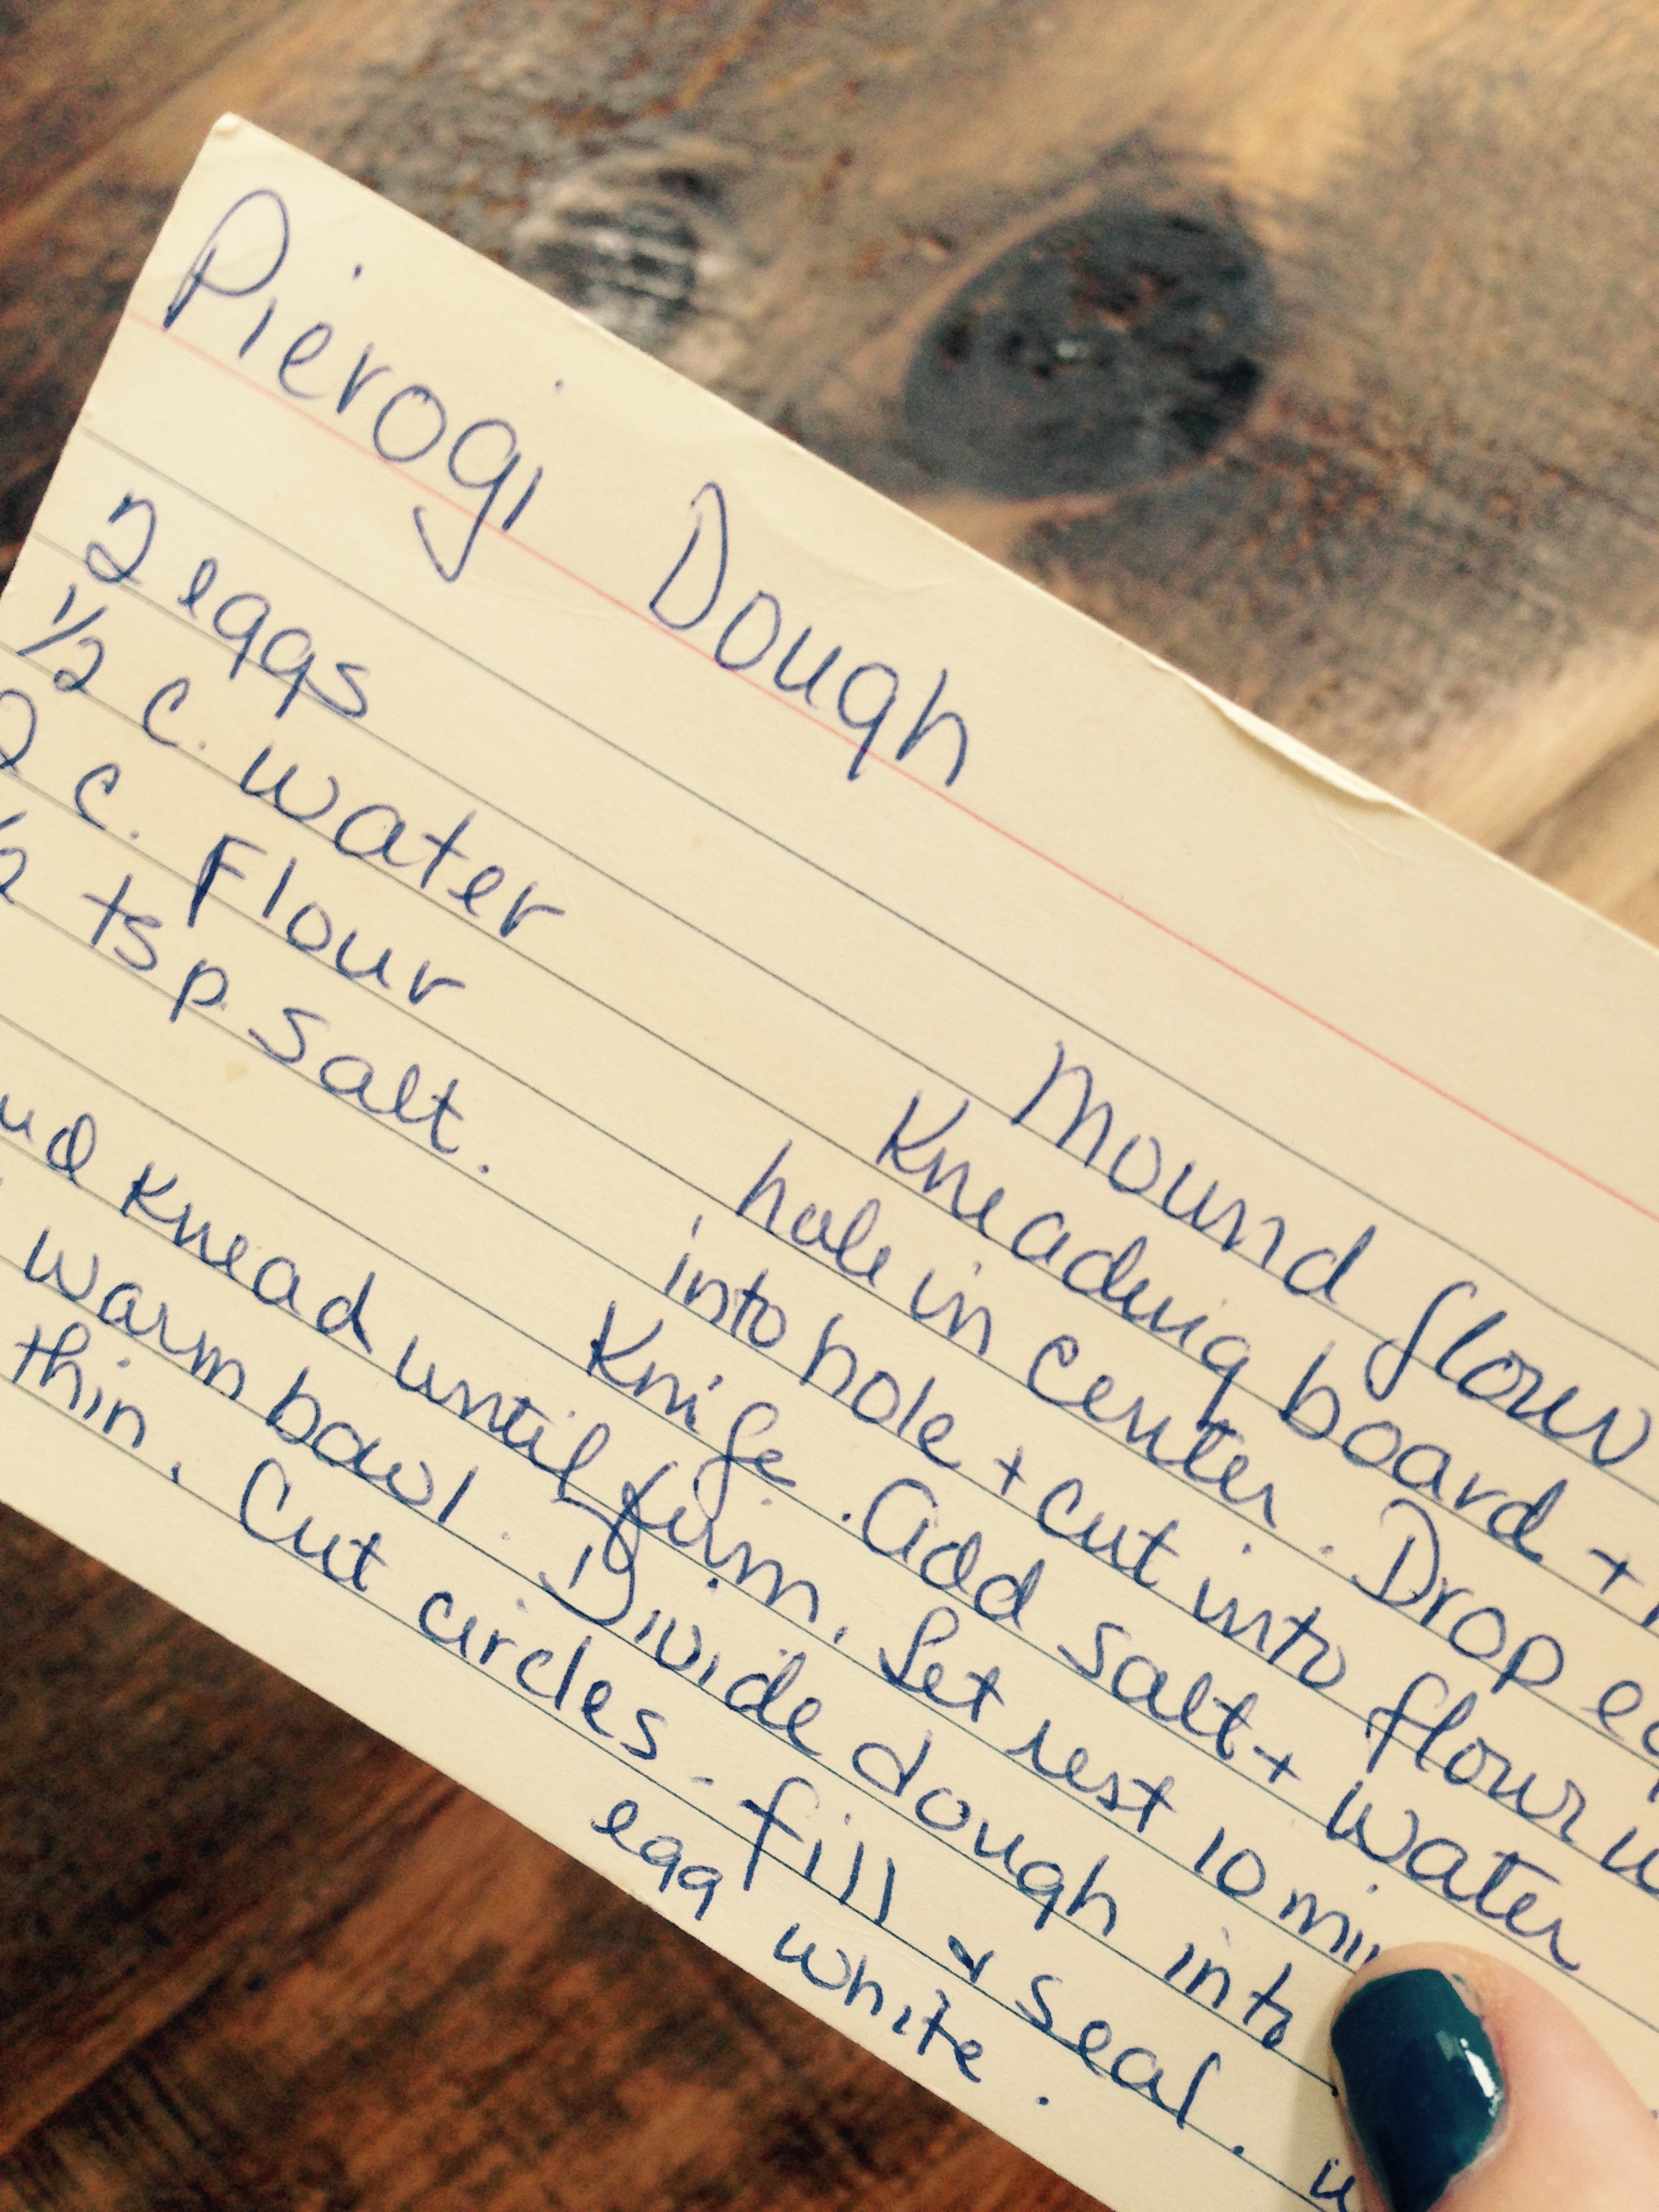 Pierogi Dough
2 eggs
1/2 c. water
2 c. Flour
tsp salt.
Mound flour
Kneading board +
hole in center. Drop
into hole + cut into flour
Knife. Add salt + water
Knead until firm. Let rest 10
warm bowl. Divide dough into
thin. Cut circles. fill + seal.
egg white.